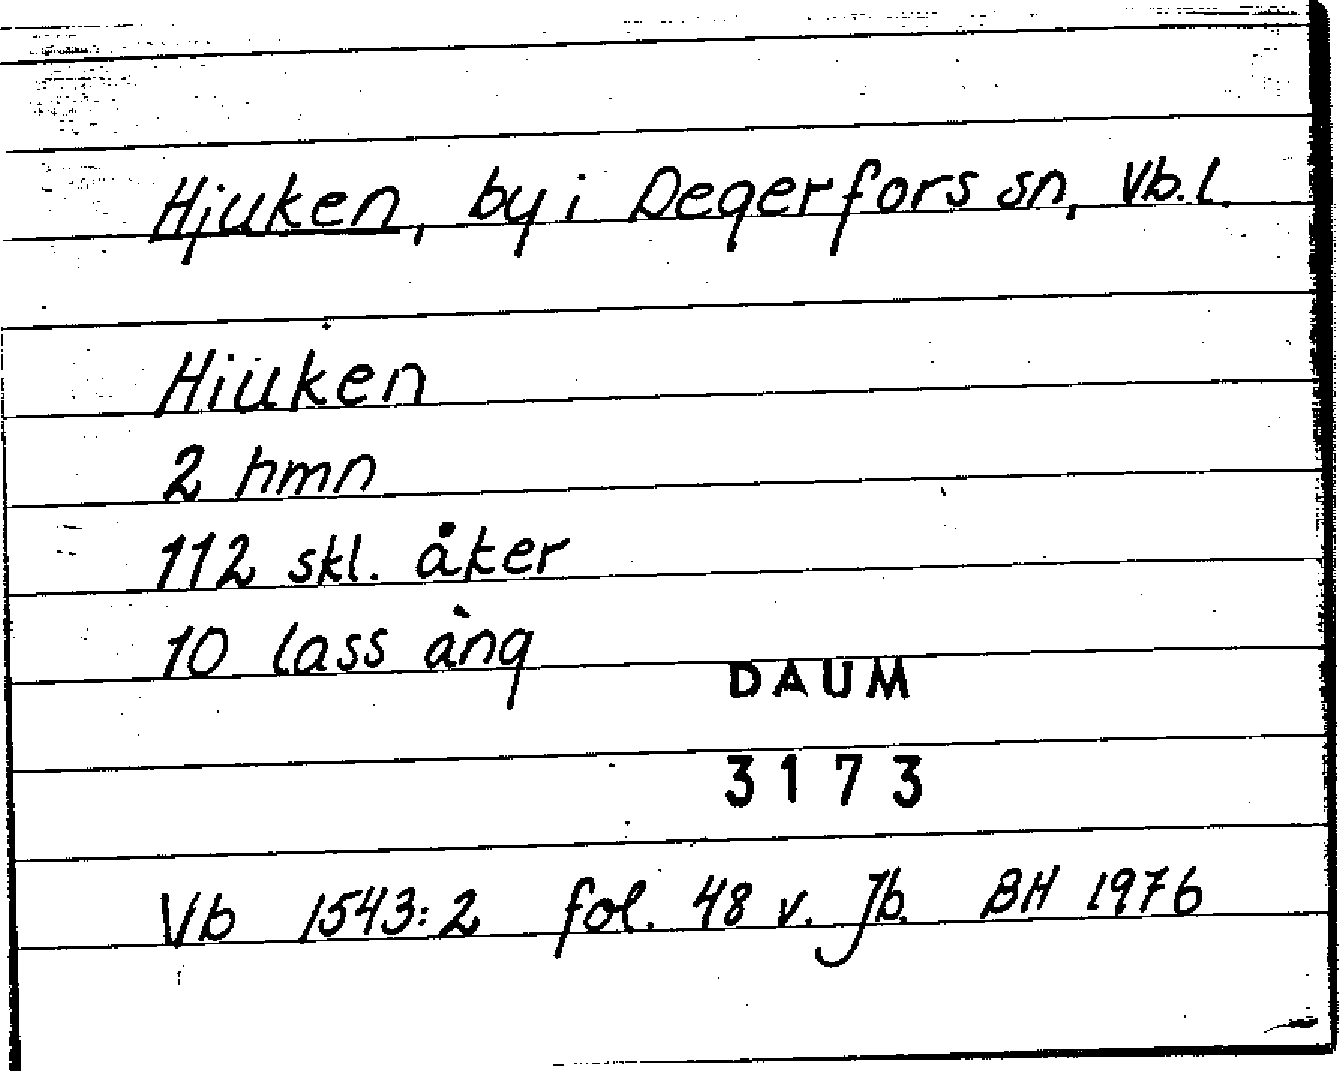 Hjuken, by i Degerfors sn, Vb.l.
Hiüken
2 hmn
112 skl. åker
10 lass äng
DAUM
3173
Vb 1543:2 fol. 48 v. Jb. BH 1976